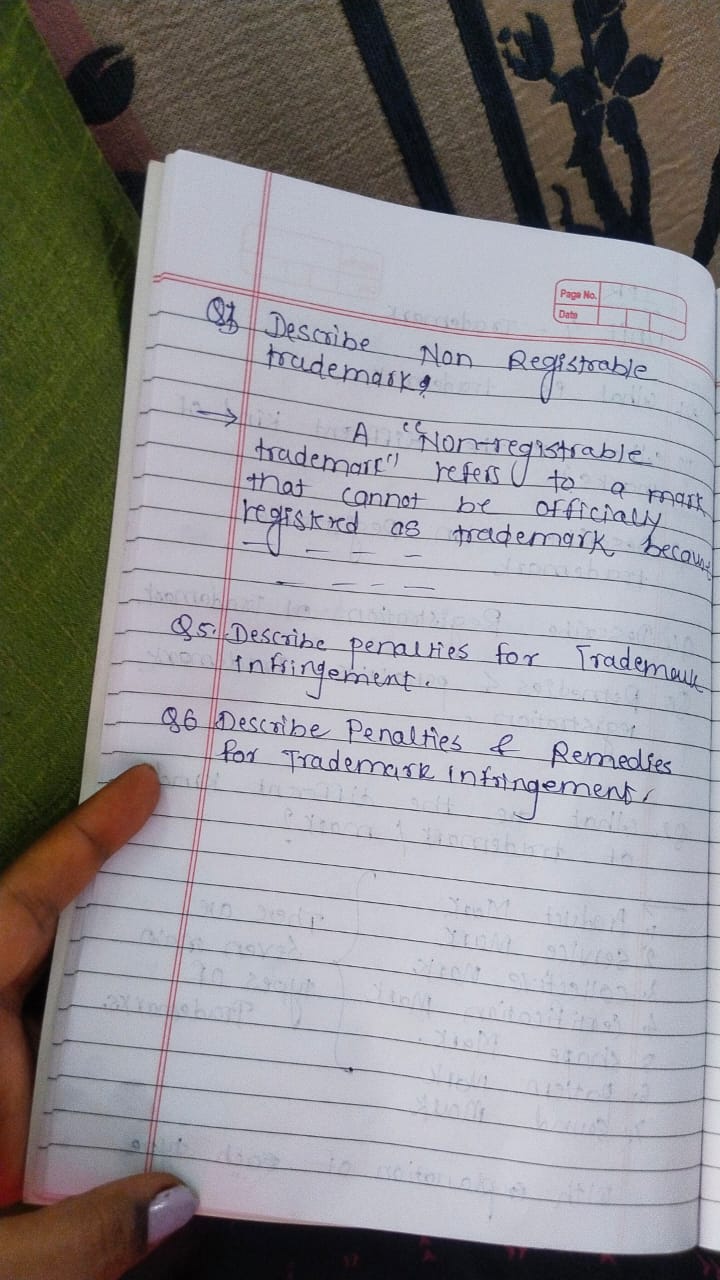 Page No.
Date
Describe Non Registrable
trademark?
→ A "Non-registrable
trademark" refers to a mark
that cannot be officially
registred as trademark becaus
— — — —
— — — —
Q5. Describe penalties for Trademark
infringement.
Q6 Describe Penalties & Remedies
for Trademark infringement.